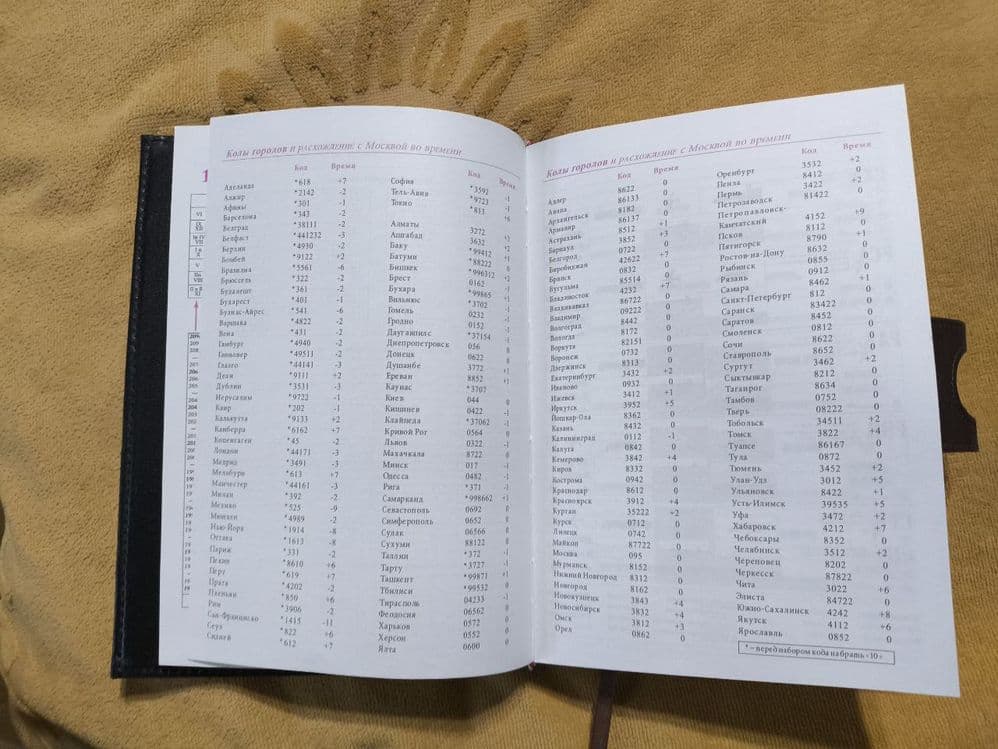 Коды городов и расхождение с Москвой во времени
Код Время
Аделаида *618 +7
Алжир *2142 -2
Афины *301 -1
Барселона *343 -2
Белград *38111 -2
Белфаст *441232 -3
Берлин *4930 -2
Бомбей *9122 +2
Бразилиа *5561 -6
Брюссель *322 -2
Будапешт *361 -2
Бухарест *401 -1
Буэнос-Айрес *541 -6
Варшава *4822 -2
Вена *431 -2
Гамбург *4940 -2
Ганновер *49511 -2
Глазго *44141 -3
Дели *9111 +2
Дублин *3531 -3
Иерусалим *9722 -1
Каир *202 -1
Калькутта *9133 +2
Канберра *6162 +7
Копенгаген *45 -2
Лондон *44171 -3
Мадрид *3491 -3
Мельбурн *613 +7
Манчестер *44161 -3
Милан *392 -2
Мехико *525 -9
Мюнхен *4989 -2
Нью-Йорк *1914 -8
Оттава *1613 -8
Париж *331 -2
Пекин *8610 +6
Перт *619 +7
Прага *4202 -2
Пхеньян *850 +6
Рим *3906 -2
Сан-Франциско *1415 -11
Сеул *822 +6
Сидней *612 +7
Код Время
София *3592 -1
Тель-Авив *9723 -1
Токио *813 +6
Алматы 3272
Ашгабад 3632
Баку *99412
Батуми *88222
Бишкек *996312
Брест 0162
Бухара *99865
Вильнюс *3702
Гомель 0232
Гродно 0152
Даугавпилс *37154
Днепропетровск 056
Донецк 0622
Душанбе 3772
Ереван 8852
Каунас *3707
Киев 044
Кишинев 0422
Клайпеда *37062
Кривой Рог 0564
Львов 0322
Махачкала 8722
Минск 017
Одесса 0482
Рига *371
Самарканд *998662
Севастополь 0692
Симферополь 0652
Судак 06566
Сухуми 88122
Таллин *372
Тарту *3727
Ташкент *99871
Тбилиси *99532
Тирасполь 04233
Феодосия 06562
Харьков 0572
Херсон 0552
Ялта 0600
Коды городов и расхождение с Москвой во времени
Код Время
Адлер 8622 0
Анапа 86133 0
Архангельск 8182 0
Армавир 86137 0
Астрахань 8512 +1
Барнаул 3852 +3
Белгород 0722 0
Биробиджан 42622 +7
Брянск 0832 0
Бугульма 85514 0
Владивосток 4232 +7
Владикавказ 86722 0
Владимир 09222 0
Волгоград 8442 0
Вологда 8172 0
Воркута 82151 0
Воронеж 0732 0
Дзержинск 8313 0
Екатеринбург 3432 +2
Иваново 0932 0
Ижевск 3412 +1
Иркутск 3952 +5
Йошкар-Ола 8362 0
Казань 8432 0
Калининград 0112 -1
Калуга 0842 0
Кемерово 3842 +4
Киров 8332 0
Кострома 0942 0
Краснодар 8612 0
Красноярск 3912 +4
Курган 35222 +2
Курск 0712 0
Липецк 0742 0
Майкоп 87722 0
Москва 095 0
Мурманск 8152 0
Нижний Новгород 8312 0
Новгород 8162 0
Новокузнецк 3843 +4
Новосибирск 3832 +4
Омск 3812 +3
Орел 0862 0
Код Время
Оренбург 3532 +2
Пенза 8412 0
Пермь 3422 +2
Петрозаводск 81422 0
Петропавловск-
Камчатский 4152 +9
Псков 8112 0
Пятигорск 8790 +1
Ростов-на-Дону 8632 0
Рыбинск 0855 0
Рязань 0912 0
Самара 8462 +1
Санкт-Петербург 812 0
Саранск 83422 0
Саратов 8452 0
Смоленск 0812 0
Сочи 8622 0
Ставрополь 8652 0
Сургут 3462 +2
Сыктывкар 8212 0
Таганрог 8634 0
Тамбов 0752 0
Тверь 08222 0
Тобольск 34511 +2
Томск 3822 +4
Туапсе 86167 0
Тула 0872 0
Тюмень 3452 +2
Улан-Удэ 3012 +5
Ульяновск 8422 +1
Усть-Илимск 39535 +5
Уфа 3472 +2
Хабаровск 4212 +7
Чебоксары 8352 0
Челябинск 3512 +2
Череповец 8202 0
Черкесск 87822 0
Чита 3022 +6
Элиста 84722 0
Южно-Сахалинск 4242 +8
Якутск 4112 +6
Ярославль 0852 0
* – перед набором кода набрать «10»